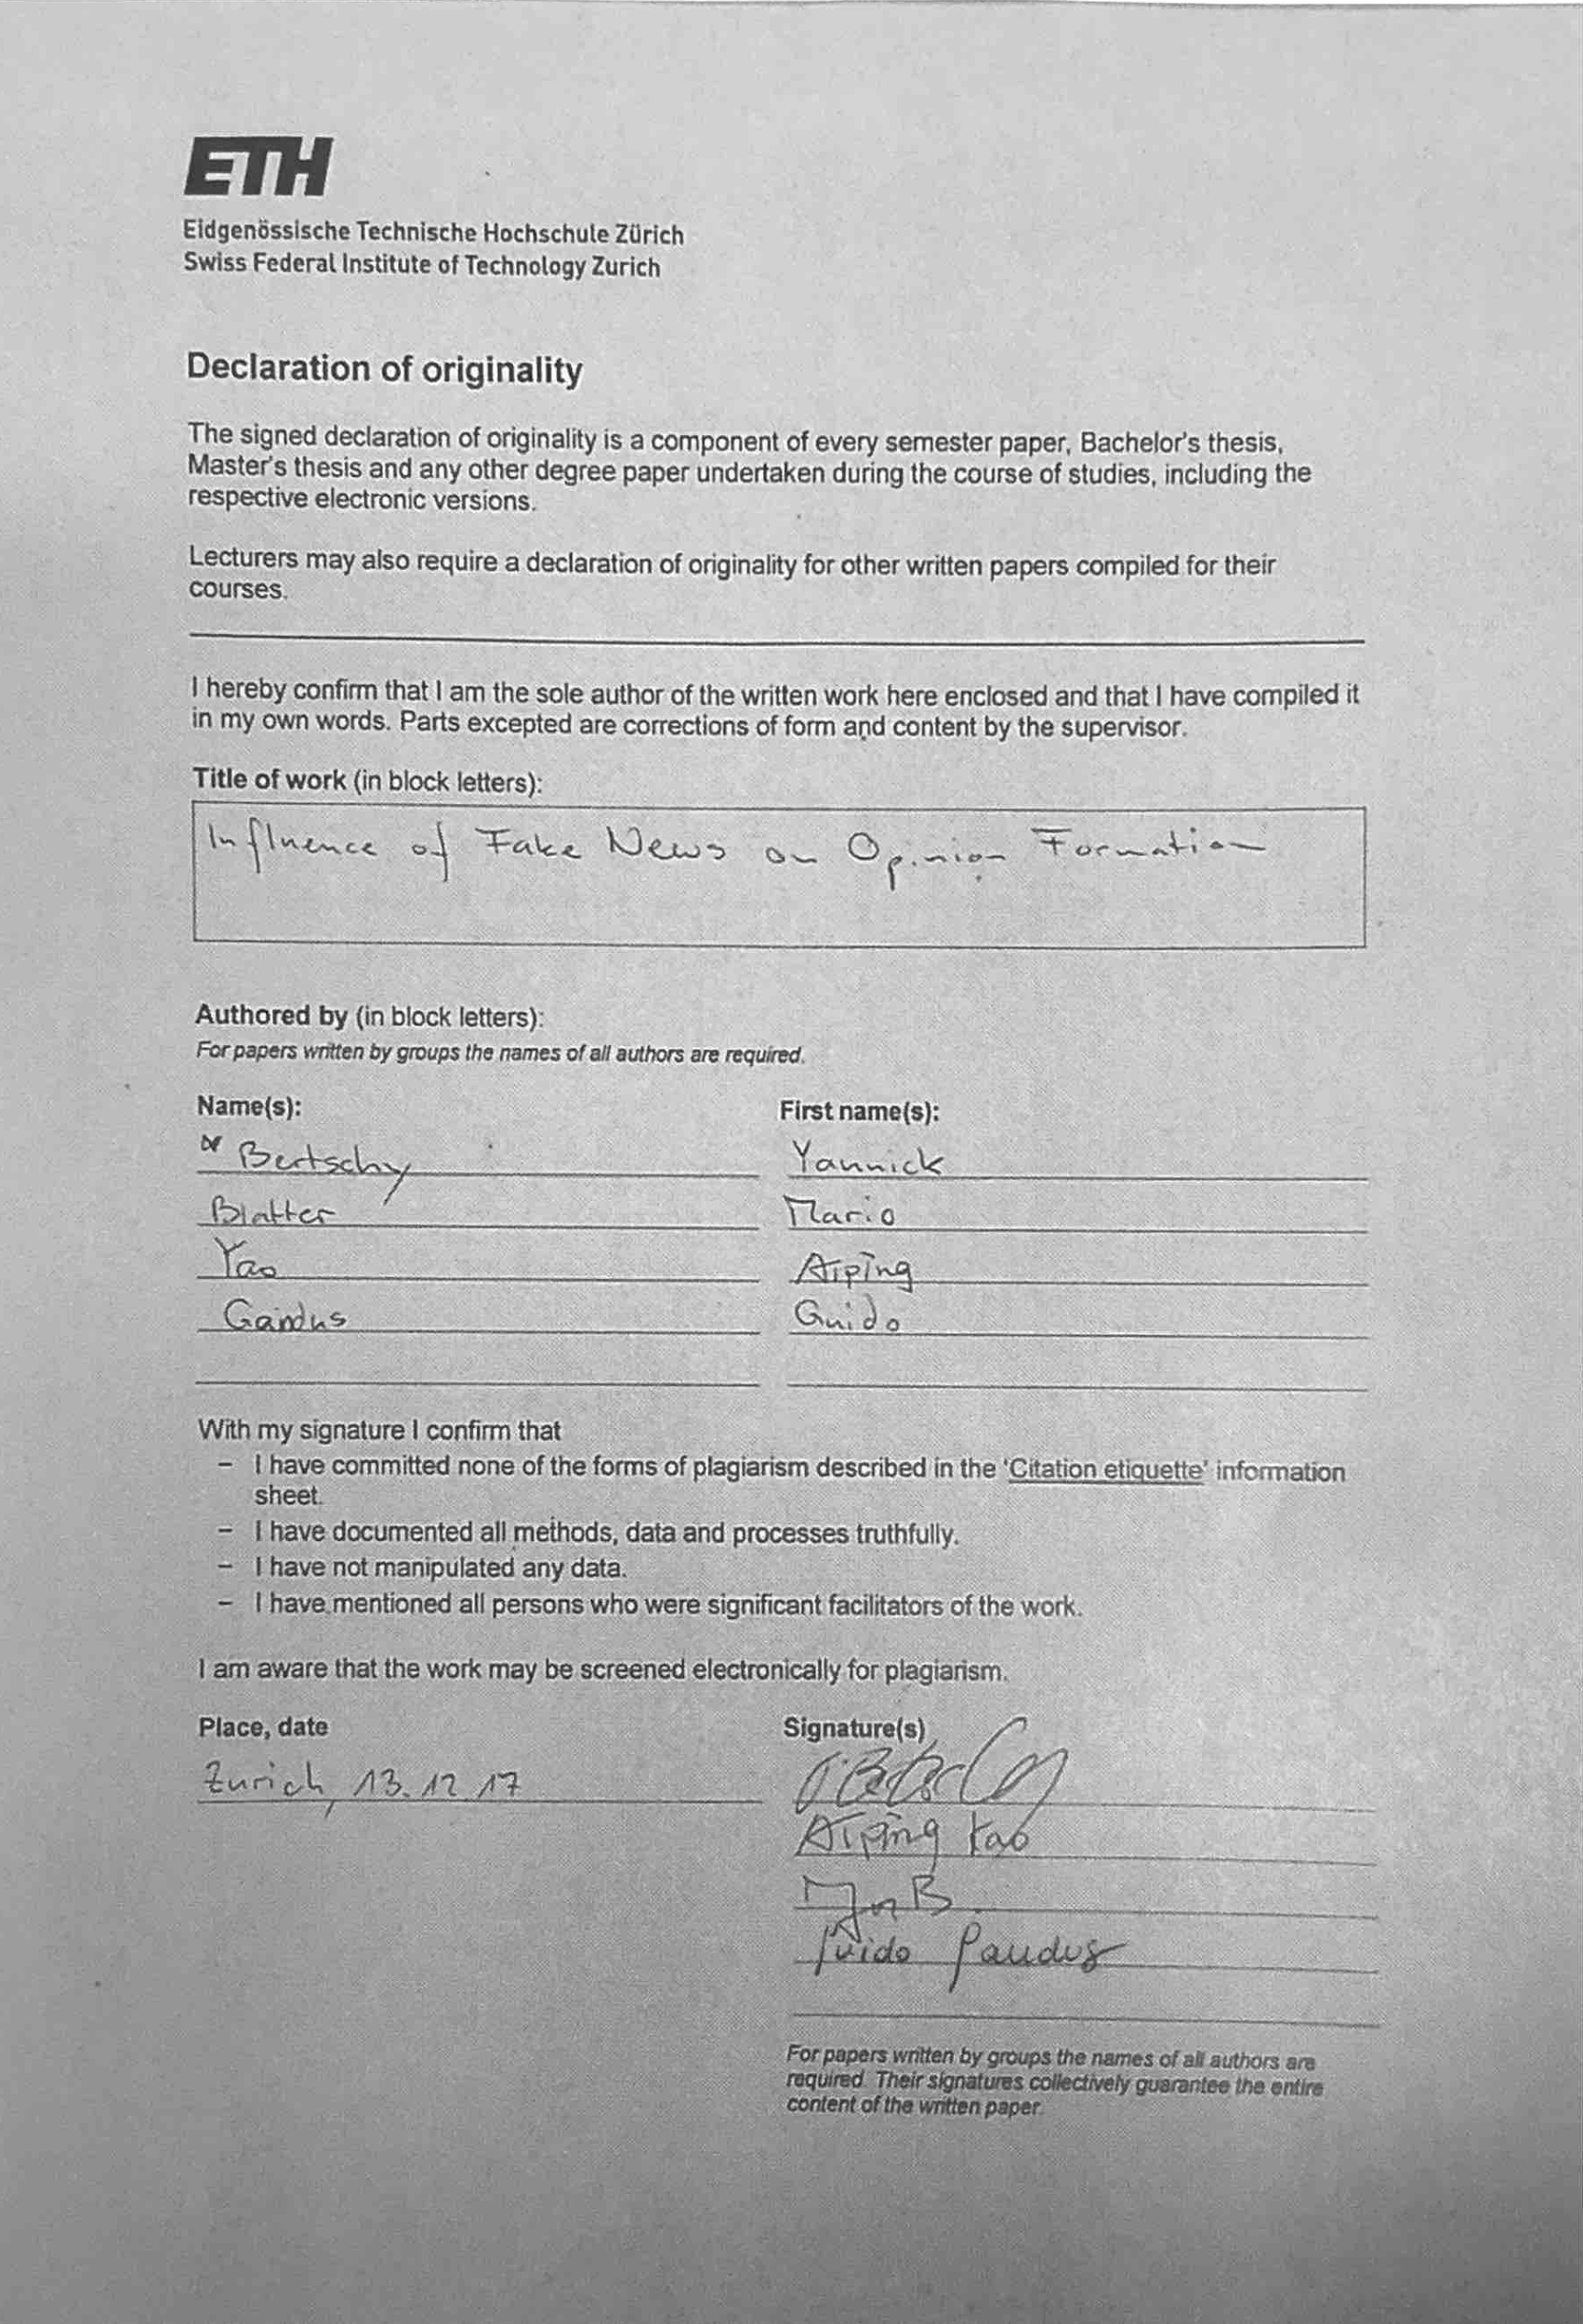 ETH
Eidgenössische Technische Hochschule Zürich
Swiss Federal Institute of Technology Zurich
Declaration of originality
The signed declaration of originality is a component of every semester paper, Bachelor's thesis,
Master's thesis and any other degree paper undertaken during the course of studies, including the
respective electronic versions.
Lecturers may also require a declaration of originality for other written papers compiled for their
courses.
I hereby confirm that I am the sole author of the written work here enclosed and that I have compiled it
in my own words. Parts excepted are corrections of form and content by the supervisor.
Title of work (in block letters):
Influence of Fake News on Opinion Formation
Authored by (in block letters):
For papers written by groups the names of all authors are required.
Name(s): First name(s):
Bertschy Yannick
Blatter Mario
Yao Aiping
Gandus Guido
With my signature I confirm that
– I have committed none of the forms of plagiarism described in the 'Citation etiquette' information
sheet.
– I have documented all methods, data and processes truthfully.
– I have not manipulated any data.
– I have mentioned all persons who were significant facilitators of the work.
I am aware that the work may be screened electronically for plagiarism.
Place, date Signature(s)
Zurich, 13.12.17
Aiping Yao
Guido Gandus
For papers written by groups the names of all authors are
required. Their signatures collectively guarantee the entire
content of the written paper.